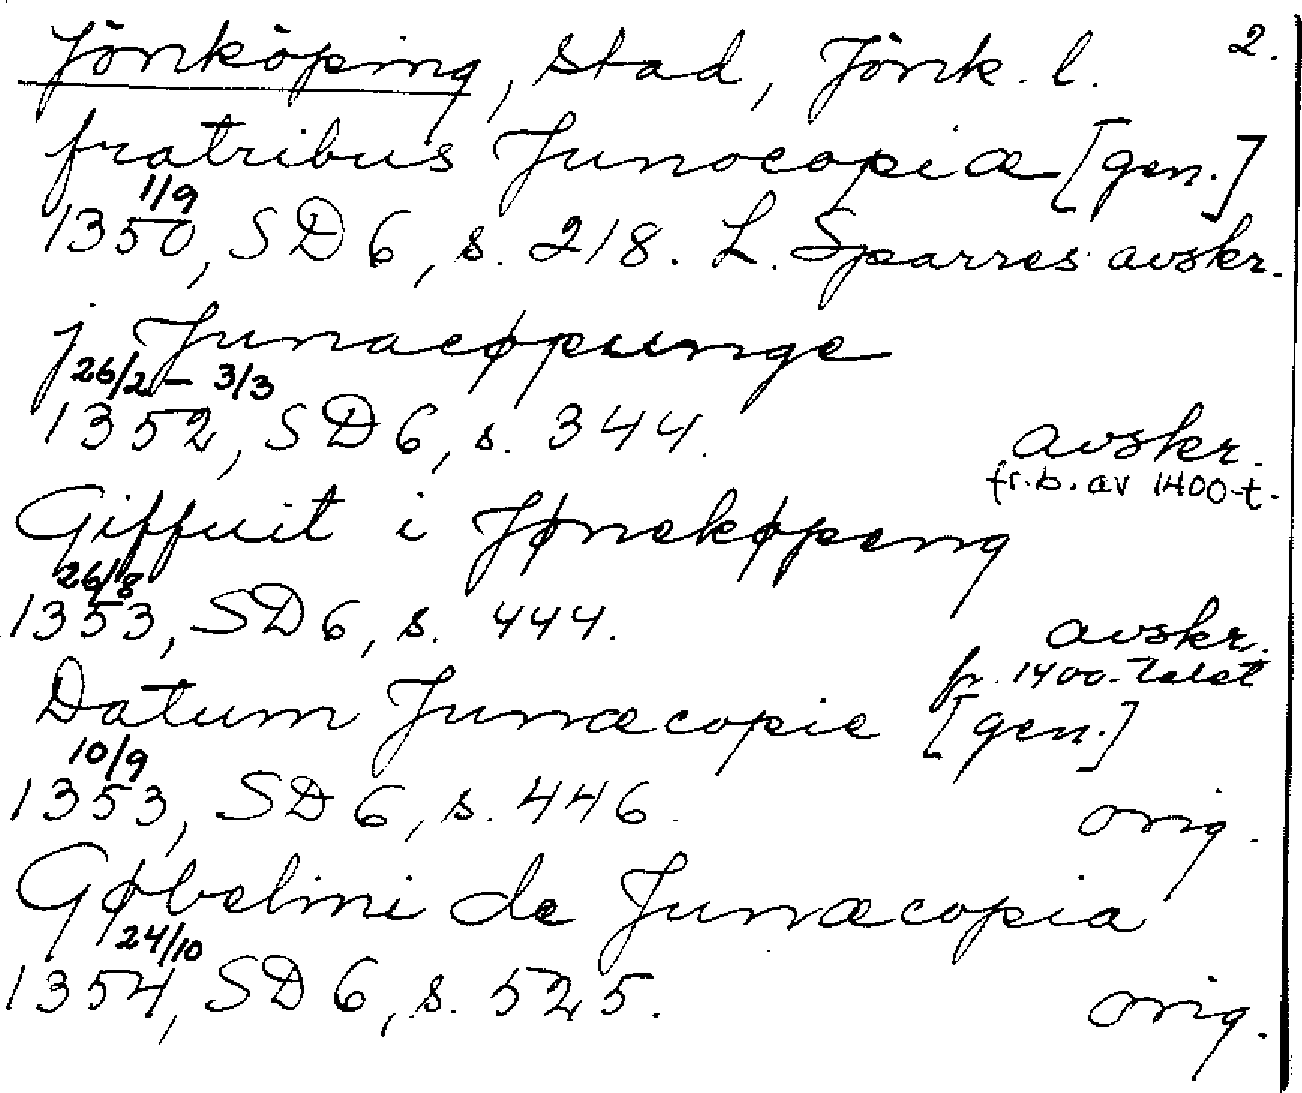 Jönköping, stad, Jönk. l. 2.
fratribus Junocopiæ [gen.]
1/9
1350, SD 6, s. 218. L. Sparres avskr.
j Junacøpunge
26/2 - 3/3
1352, SD 6, s. 344. avskr.
fr. b. av 1400-t.
Giffuit i Jøneképeng
26/8
1353, SD 6, s. 444. avskr.
fr. 1400-talet
Datum Junæcopie [gen.]
10/9
1353, SD 6, s. 446. orig.
Gøbelini de Junæcopia
24/10
1354, SD 6, s. 525. orig.